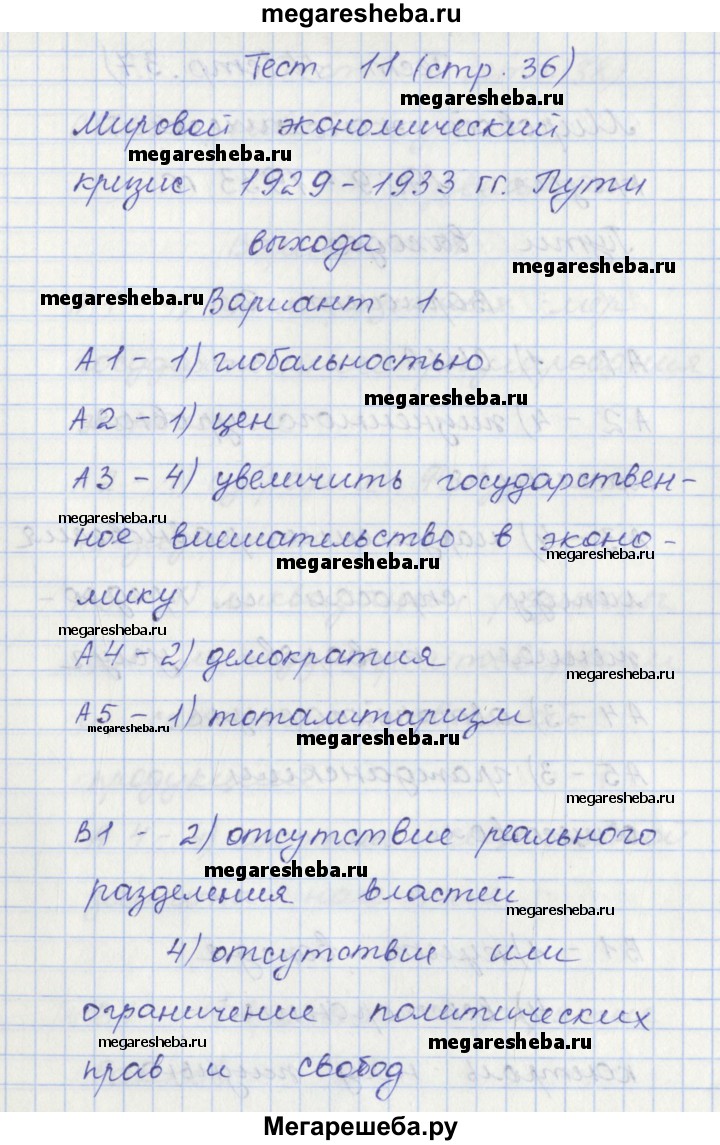 megaresheba.ru
Тест 11 (стр. 36)
megaresheba.ru
Мировой экономический
megaresheba.ru
кризис 1929-1933 гг. Пути
выхода
megaresheba.ru
megaresheba.ru
Вариант 1
А1 - 1) глобальностью
megaresheba.ru
А2 - 1) цен
А3 - 4) увеличить государствен-
megaresheba.ru
ное вмешательство в эконо-
megaresheba.ru
megaresheba.ru
мику
megaresheba.ru
А4 - 2) демократия
megaresheba.ru
А5 - 1) тоталитаризм
megaresheba.ru
megaresheba.ru
megaresheba.ru
В1 - 2) отсутствие реального
megaresheba.ru
разделения властей
megaresheba.ru
4) отсутствие или
ограничение политических
megaresheba.ru
megaresheba.ru
прав и свобод
Мегарешеба.ру